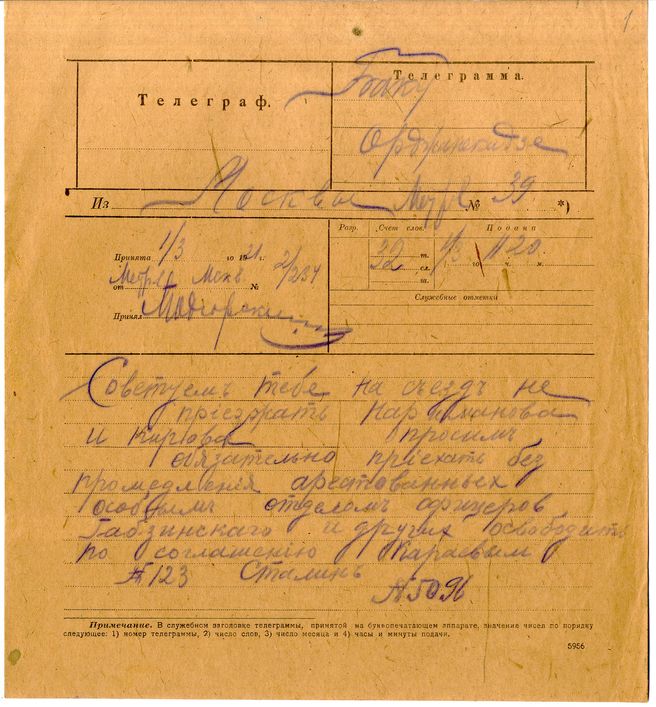 1
Телеграф.
Телеграмма.
Баку
Орджоникидзе
Из Москвы № 39 *)
Разр. Счет слов. Подана
Принята 1/3 го 1921 г.
32 т. 1/3 го 11 ч. 20 м.
сл.
от Мскв № 2/1234
Принял
Служебные отметки
Советуемъ тебе на съездъ не
прiезжать Нариманова
и Кирова просимъ
обязательно прiехать без
промедленiя арестованных
особымъ отделомъ офицеров
Габзинскаго и других освободить
по соглашению Караевым
№ 123 Сталинъ
№ 5096
Примечание. В служебном заголовке телеграммы, принятой на буквопечатающем аппарате, значение чисел по порядку
следующее: 1) номер телеграммы, 2) число слов, 3) число месяца и 4) часы и минуты подачи.
5956